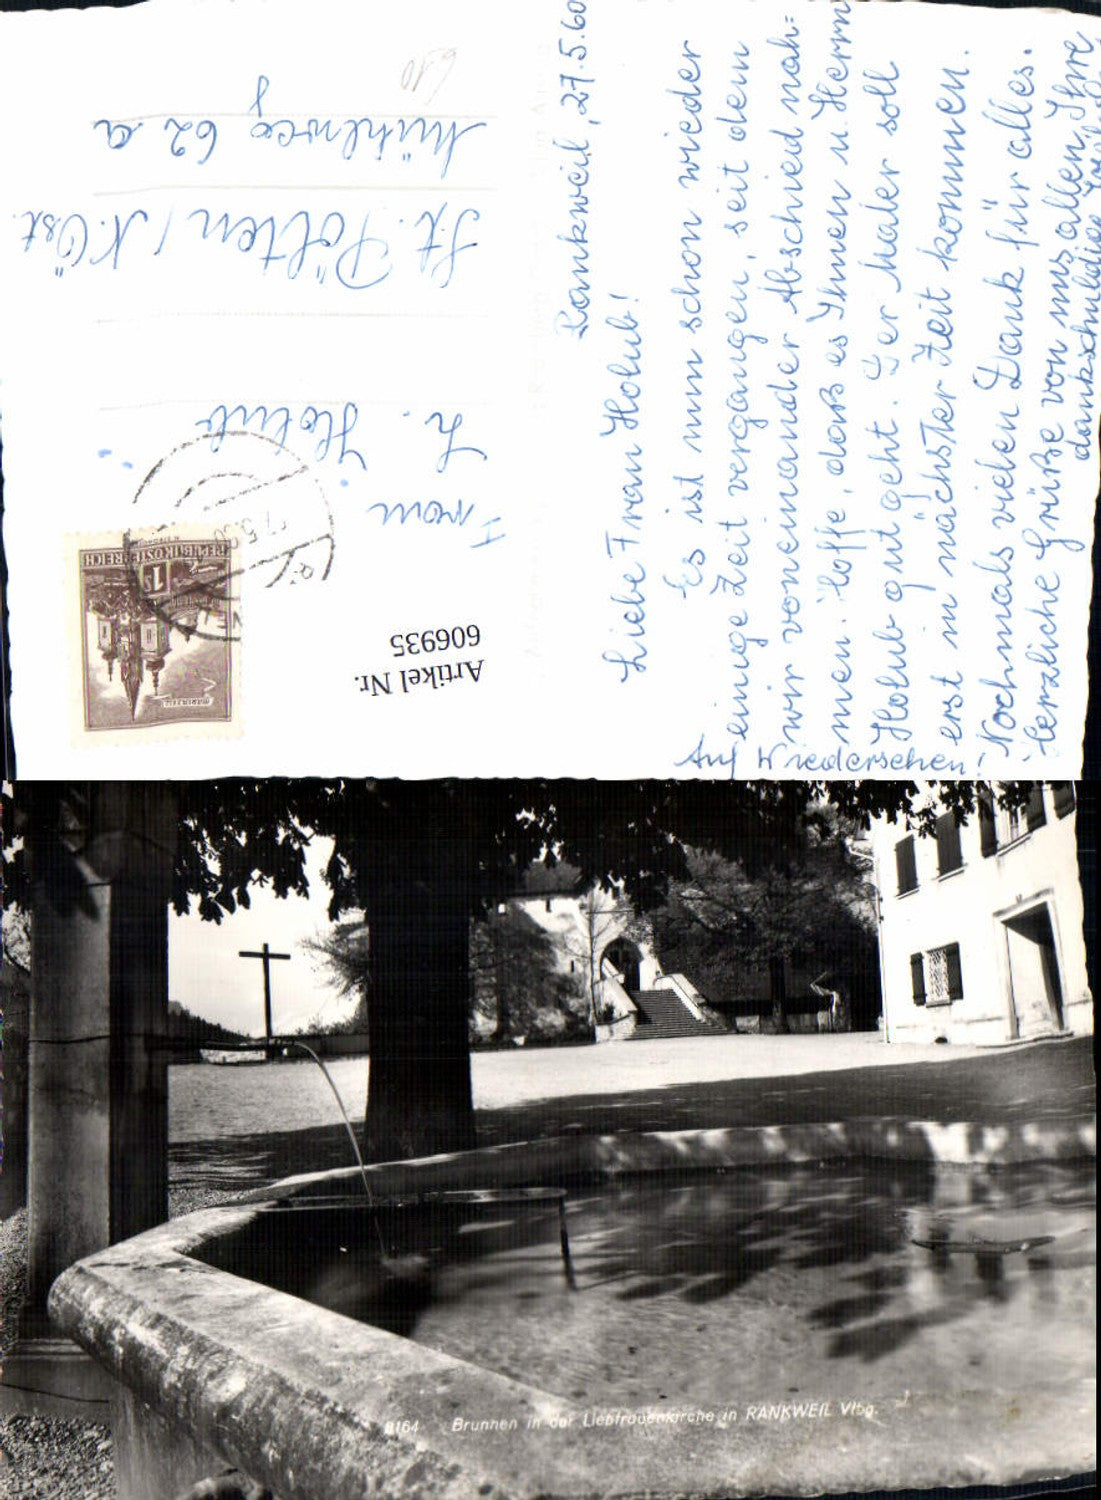 Rankweil, 27.5.60
Liebe Frau Holub!
Es ist nun schon wieder
einige Zeit vergangen, seit dem
wir voneinander Abschied nah=
men. Hoffe, daß es Ihnen u. Herrn
Holub gut geht. Der Maler soll
erst in nächster Zeit kommen.
Nochmals vielen Dank für alles.
Herzliche Grüße von uns allen, Ihre
dankschuldige
Auf Wiedersehen!
Frau
L. Holub
St. Pölten / N. Öst.
Mühlweg 62 a
610
REPUBLIK ÖSTERREICH
1 S
MARIAZELL
Artikel Nr.
606935
8164 Brunnen in der Liebfrauenkirche in RANKWEIL Vlbg.